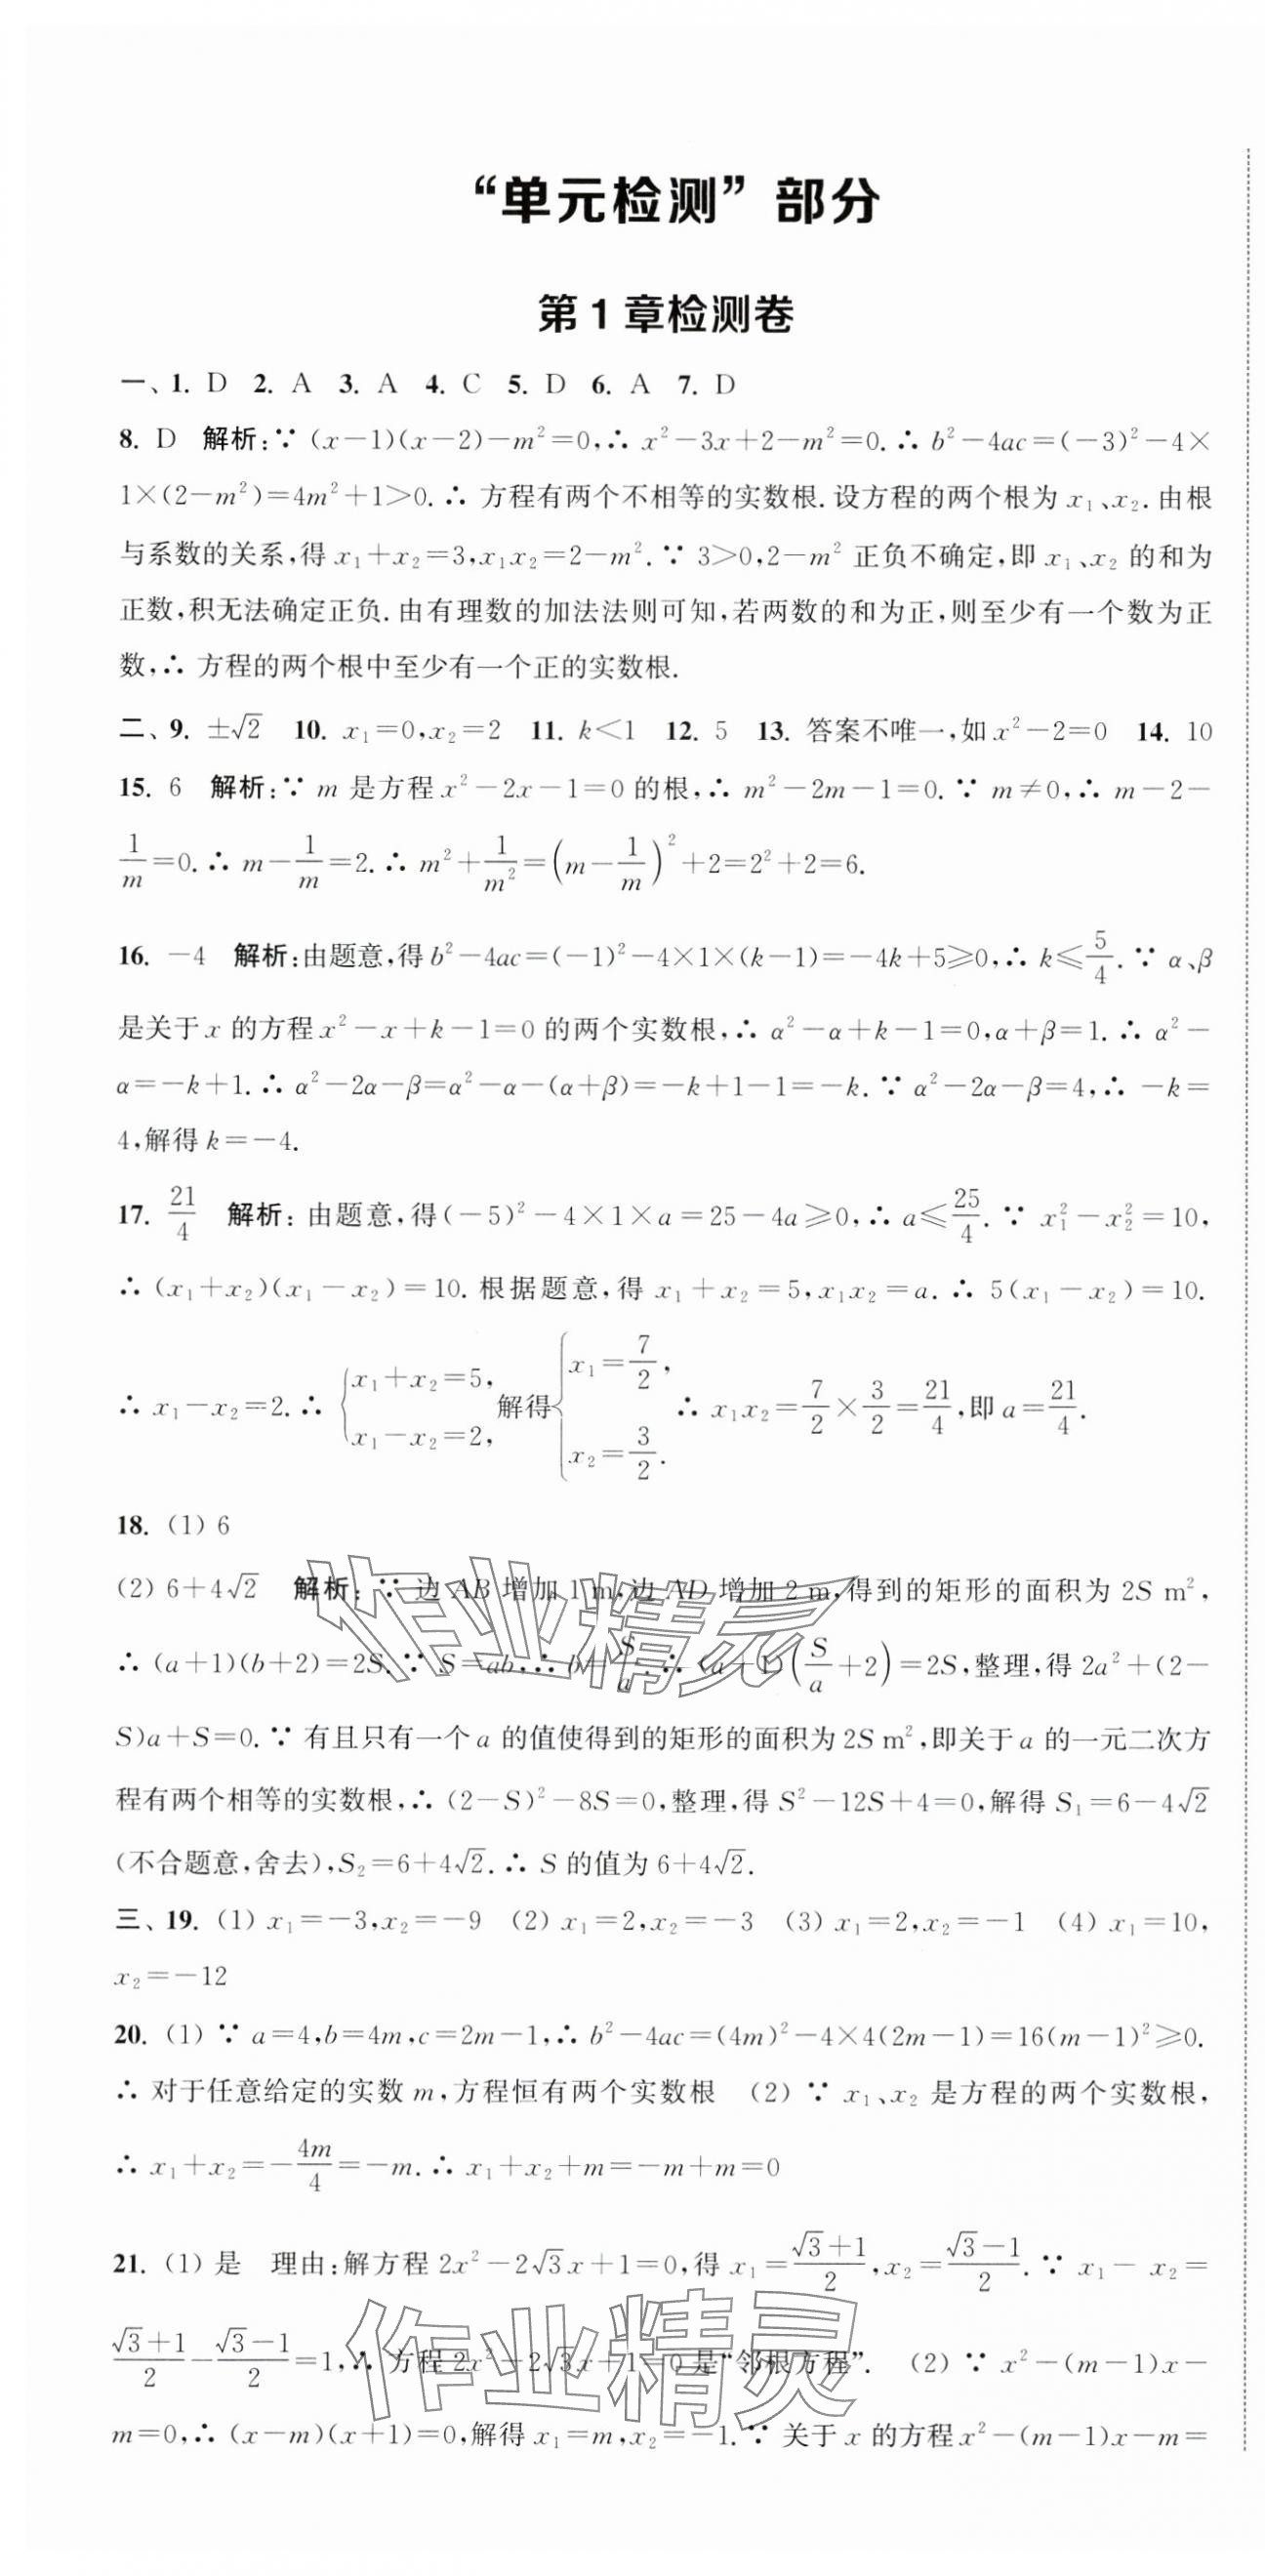 “单元检测”部分
第1章检测卷
一、1. D 2. A 3. A 4. C 5. D 6. A 7. D
8. D 解析:∵ (x-1)(x-2)-m²=0,∴ x²-3x+2-m²=0.∴ b²-4ac=(-3)²-4×
1×(2-m²)=4m²+1>0.∴ 方程有两个不相等的实数根.设方程的两个根为 x₁、x₂.由根
与系数的关系,得 x₁+x₂=3,x₁x₂=2-m².∵ 3>0,2-m² 正负不确定,即 x₁、x₂ 的和为
正数,积无法确定正负.由有理数的加法法则可知,若两数的和为正,则至少有一个数为正
数,∴ 方程的两个根中至少有一个正的实数根.
二、9. ±√2 10. x₁=0,x₂=2 11. k<1 12. 5 13. 答案不唯一,如 x²-2=0 14. 10
15. 6 解析:∵ m 是方程 x²-2x-1=0 的根,∴ m²-2m-1=0.∵ m≠0,∴ m-2-
1/m=0.∴ m-1/m=2.∴ m²+1/m²=(m-1/m)²+2=2²+2=6.
16. -4 解析:由题意,得 b²-4ac=(-1)²-4×1×(k-1)=-4k+5≥0,∴ k≤5/4.∵ α、β
是关于 x 的方程 x²-x+k-1=0 的两个实数根,∴ α²-α+k-1=0,α+β=1.∴ α²-
α=-k+1.∴ α²-2α-β=α²-α-(α+β)=-k+1-1=-k.∵ α²-2α-β=4,∴ -k=
4,解得 k=-4.
17. 21/4 解析:由题意,得(-5)²-4×1×a=25-4a≥0,∴ a≤25/4.∵ x₁²-x₂²=10,
∴ (x₁+x₂)(x₁-x₂)=10.根据题意,得 x₁+x₂=5,x₁x₂=a.∴ 5(x₁-x₂)=10.
∴ x₁-x₂=2.∴ {x₁+x₂=5, x₁-x₂=2, 解得{x₁=7/2, x₂=3/2. ∴ x₁x₂=7/2×3/2=21/4,即 a=21/4.
18. (1) 6
(2) 6+4√2 解析:∵ 边 AB 增加 1 m,边 AD 增加 2 m,得到的矩形的面积为 2S m²,
∴ (a+1)(b+2)=2S.∵ S=ab,∴ b=S/a.∴ (a+1)(S/a+2)=2S,整理,得 2a²+(2-
S)a+S=0.∵ 有且只有一个 a 的值使得到的矩形的面积为 2S m²,即关于 a 的一元二次方
程有两个相等的实数根,∴ (2-S)²-8S=0,整理,得 S²-12S+4=0,解得 S₁=6-4√2
(不合题意,舍去),S₂=6+4√2.∴ S 的值为 6+4√2.
三、19. (1) x₁=-3,x₂=-9 (2) x₁=2,x₂=-3 (3) x₁=2,x₂=-1 (4) x₁=10,
x₂=-12
20. (1) ∵ a=4,b=4m,c=2m-1,∴ b²-4ac=(4m)²-4×4(2m-1)=16(m-1)²≥0.
∴ 对于任意给定的实数 m,方程恒有两个实数根 (2) ∵ x₁、x₂ 是方程的两个实数根,
∴ x₁+x₂=-4m/4=-m.∴ x₁+x₂+m=-m+m=0
21. (1) 是 理由:解方程 2x²-2√3x+1=0,得 x₁=(√3+1)/2,x₂=(√3-1)/2.∵ x₁-x₂=
(√3+1)/2-(√3-1)/2=1,∴ 方程 2x²-2√3x+1=0 是“邻根方程”. (2) ∵ x²-(m-1)x-
m=0,∴ (x-m)(x+1)=0,解得 x₁=m,x₂=-1.∵ 关于 x 的方程 x²-(m-1)x-m=
作业精灵
作业精灵